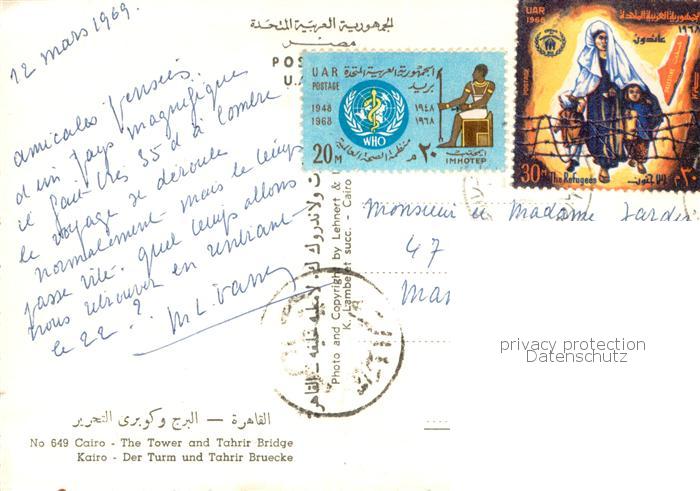 12 mars 1969.
amicales pensées
d'un pays magnifique
il fait très 35° à l'ombre
le voyage se déroule
normalement mais le temps
passe vite. quel temps allons
nous retrouver en rentrant
le 22 ?
الجمهورية العربية المتحدة
مصر
POS
U.A
UAR
POSTAGE
الجمهورية العربية المتحدة
بريد
1948
1968
١٩٤٨
١٩٦٨
WHO
منظمة الصحة العالمية
20 M
٢٠ م
امحتب
IMHOTEP
UAR
1968
الجمهورية العربية المتحدة
١٩٦٨
عائدون
PALESTINE
POSTAGE
30 M
The Refugees
اللاجئون
٣٠
Monsieur et Madame
47
Photo and Copyright by Lehnert &
K. Lambelet succ. Cairo
privacy protection
Datenschutz
القاهرة — البرج وكوبرى التحرير
No 649 Cairo - The Tower and Tahrir Bridge
Kairo - Der Turm und Tahrir Bruecke